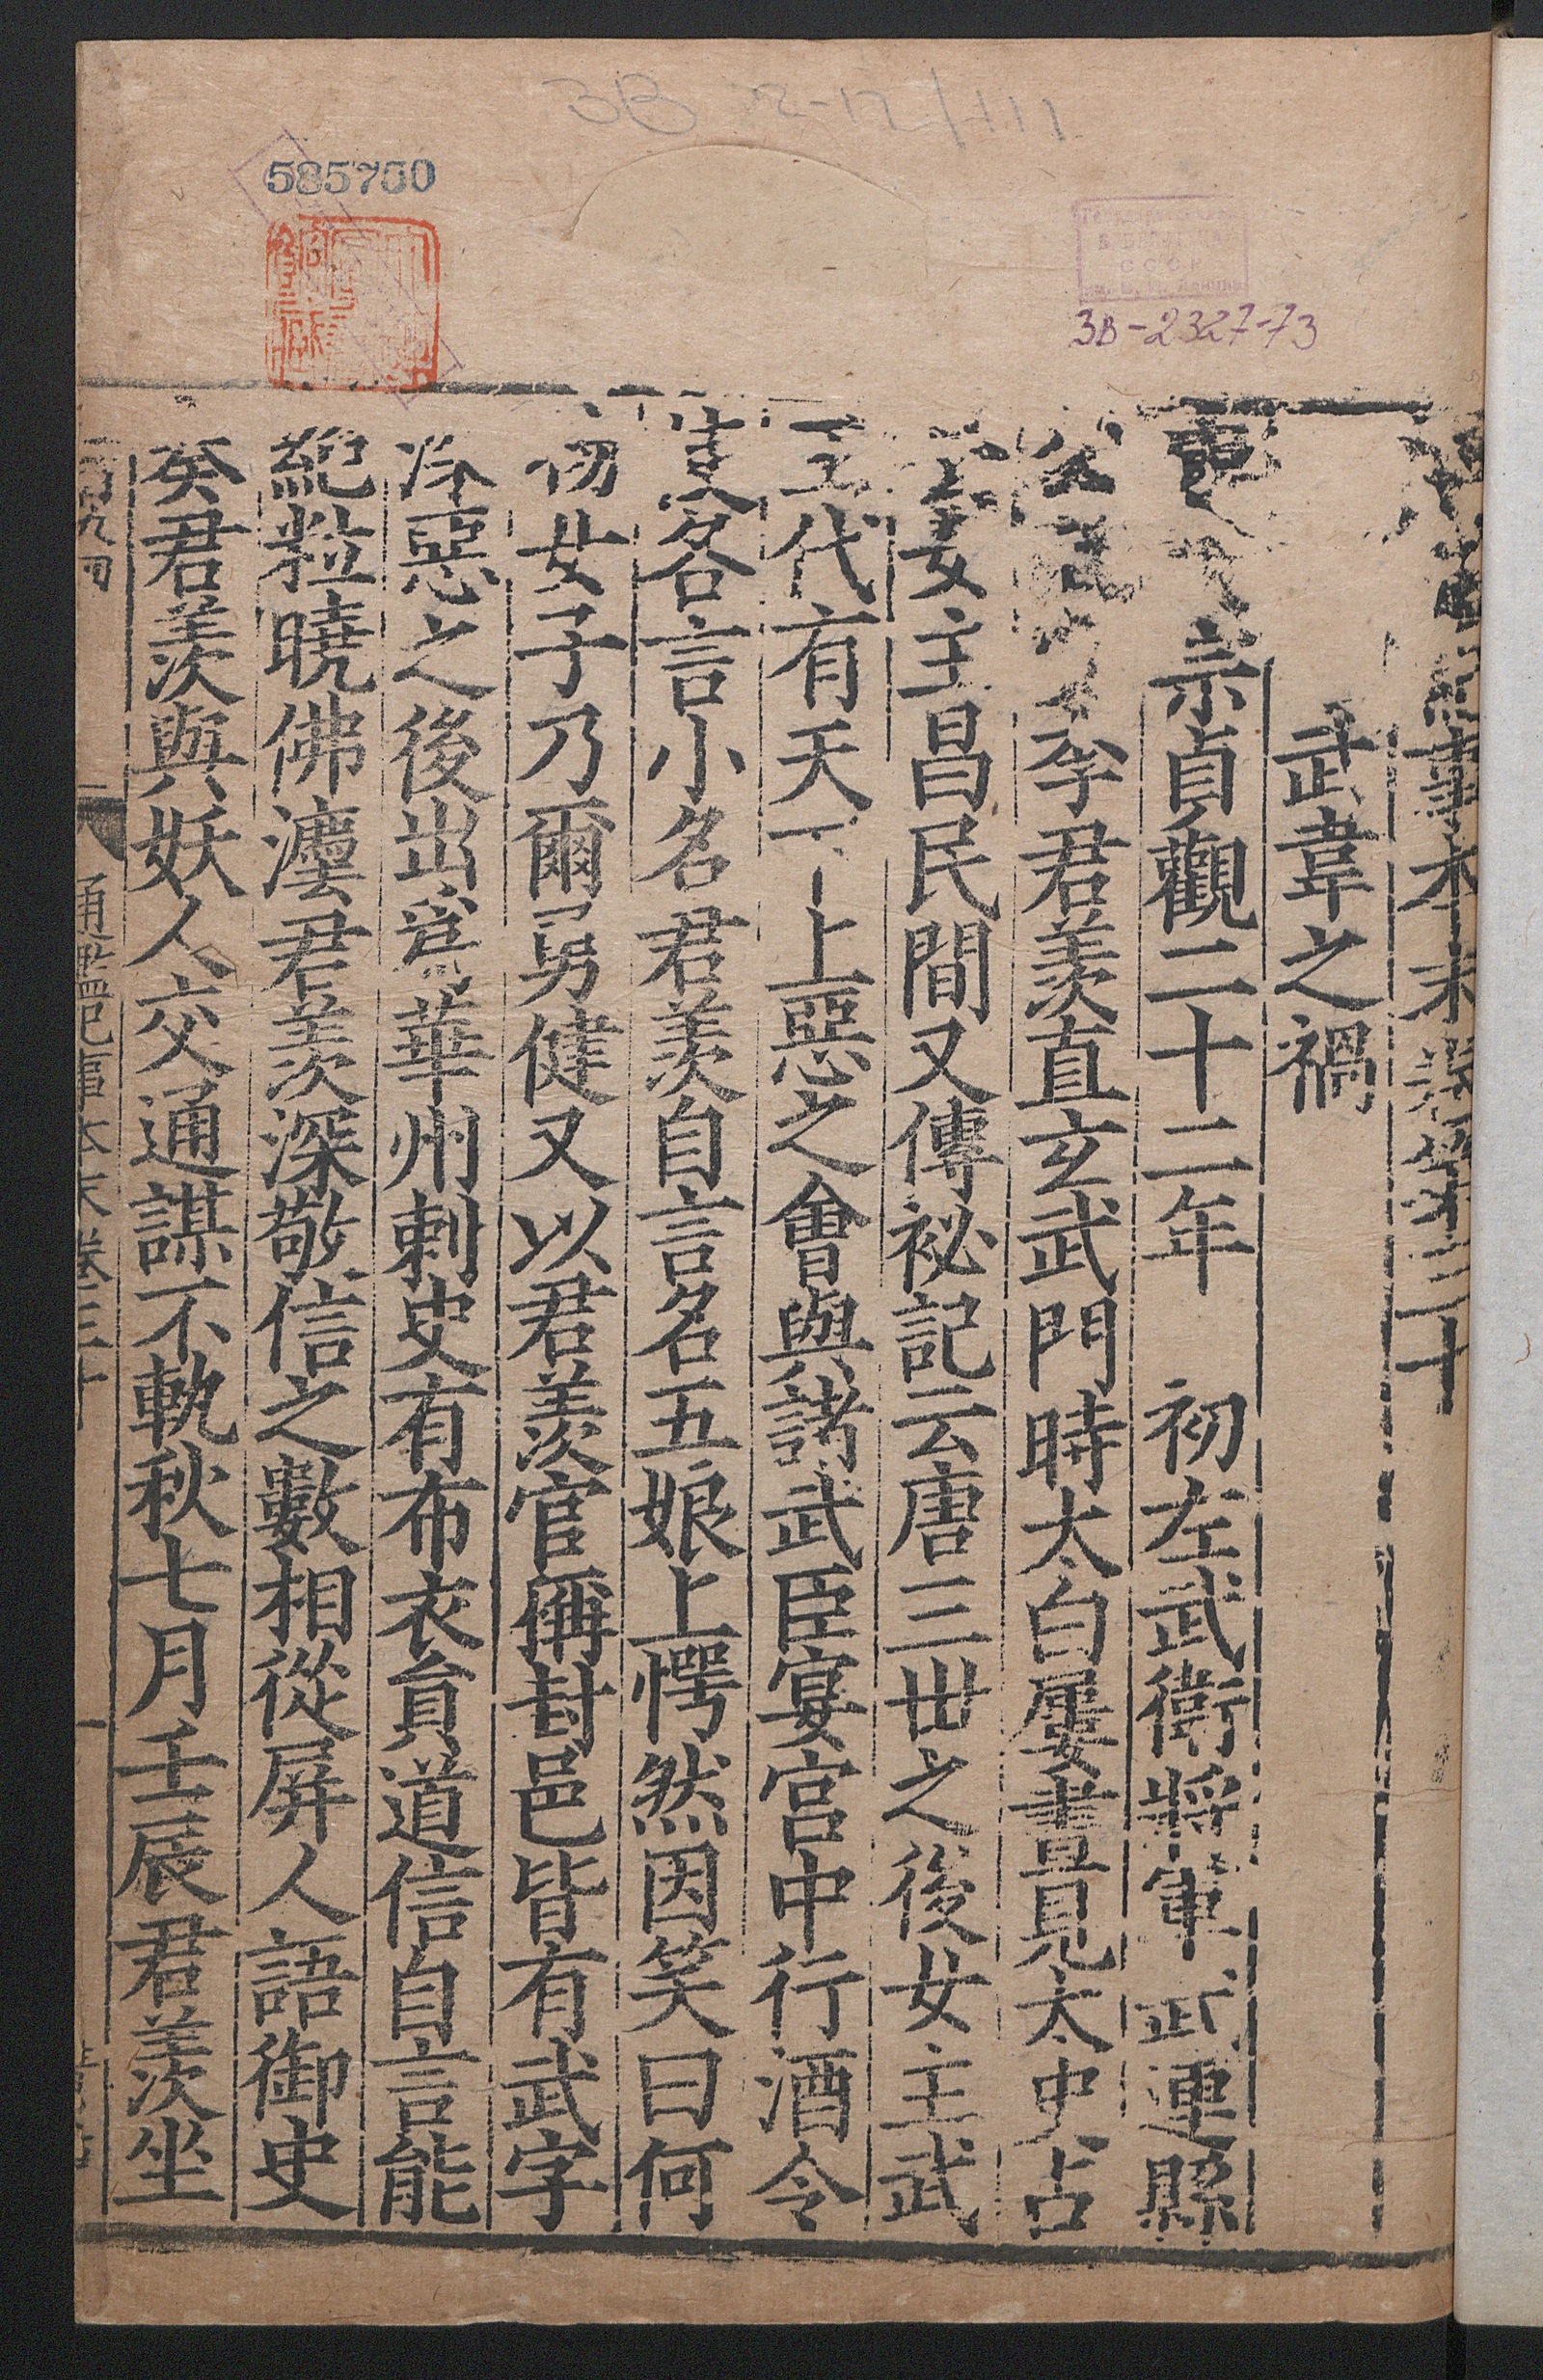 3B 2-17/111
585760
3в-2327-73
紀事本末卷第三十
武韋之禍
宗貞觀二十二年　初左武衛將軍武連縣
公武李君羨直玄武門時太白屢晝見太史占
云女主昌民間又傳祕記云唐三世之後女主武
王代有天下上惡之會與諸武臣宴宮中行酒令
使各言小名君羨自言名五娘上愕然因笑曰何
物女子乃爾勇健又以君羨官稱封邑皆有武字
深惡之後出為華州刺史有布衣員道信自言能
絕粒曉佛灋君羨深敬信之數相從屏人語御史
奏君羨與妖人交通謀不軌秋七月壬辰君羨坐
通鑑紀事本末卷三十